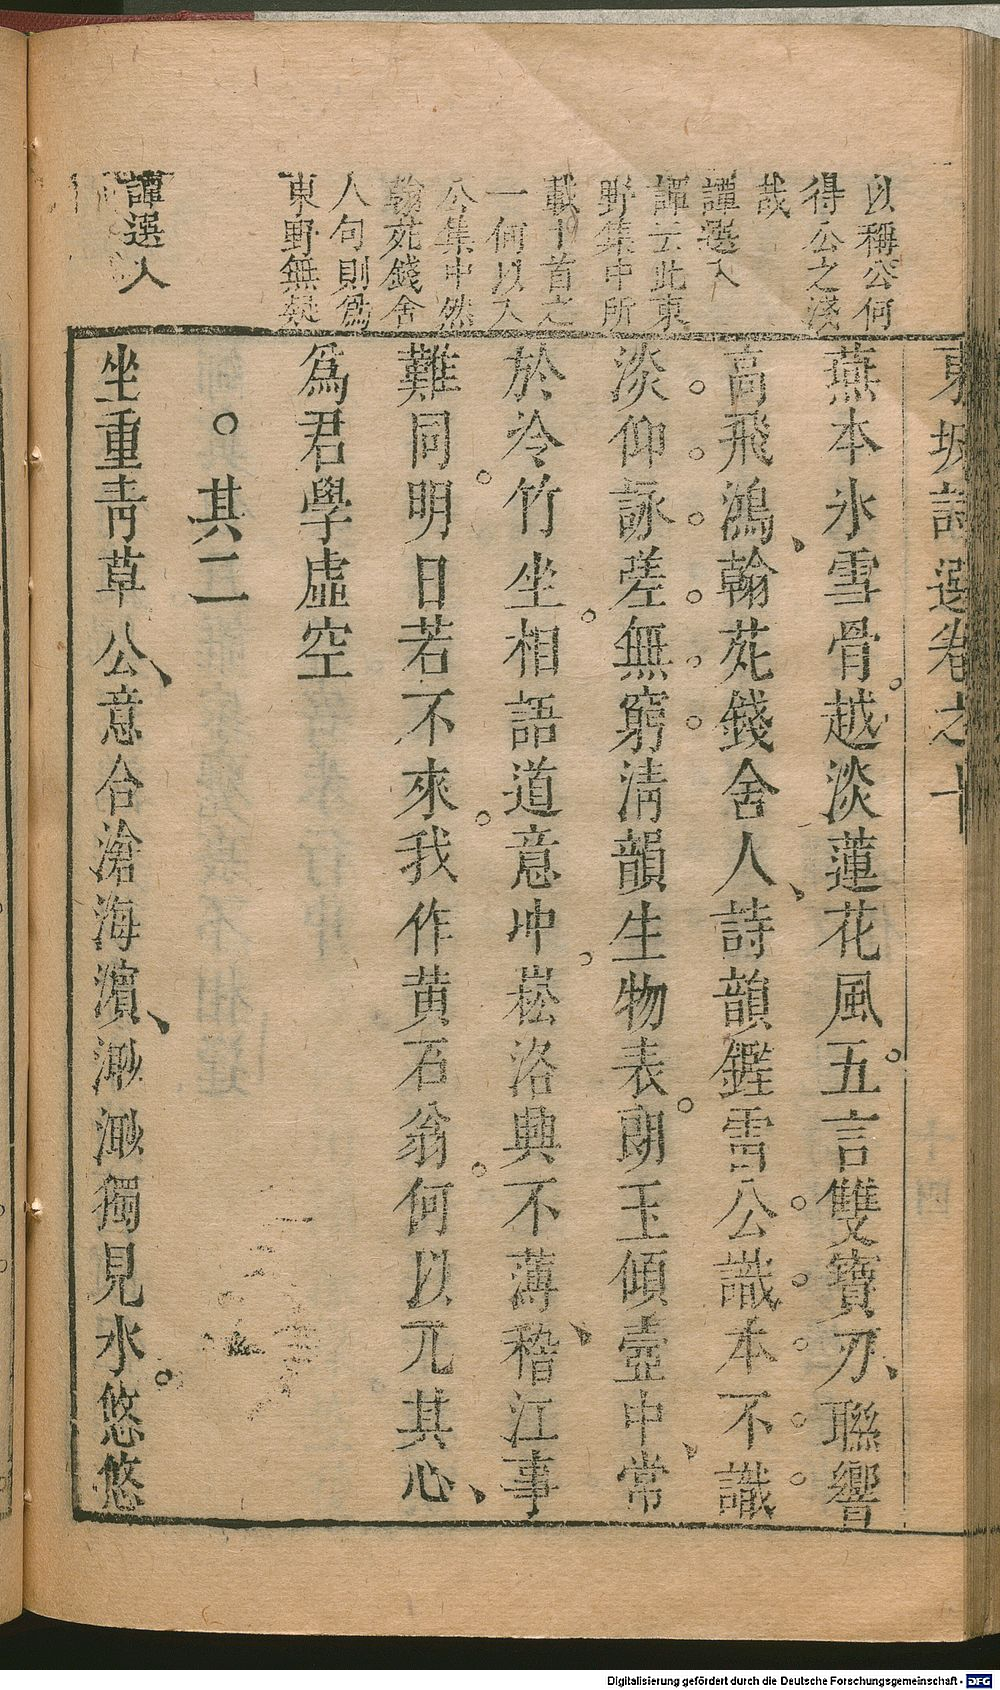 以稱公何
得公之淺
哉
譚選入
譚云此東
野集中所
載十首之
一何以入
公集中然
翰苑錢舍
人句則爲
東野無疑
譚選入
東坡詩選卷之十
燕本氷雪骨越淡蓮花風五言雙寶刀聯響
高飛鴻翰苑錢舍人詩韻鏗雷公識本不識
淡仰詠嗟無窮清韻生物表朗玉傾壺中常
於冷竹坐相語道意冲崧洛興不薄稽江事
難同明日若不來我作黃石翁何以兀其心
爲君學虛空
。其二
坐重青草公意合滄海濱渺渺獨見水悠悠
Digitalisierung gefördert durch die Deutsche Forschungsgemeinschaft - DFG